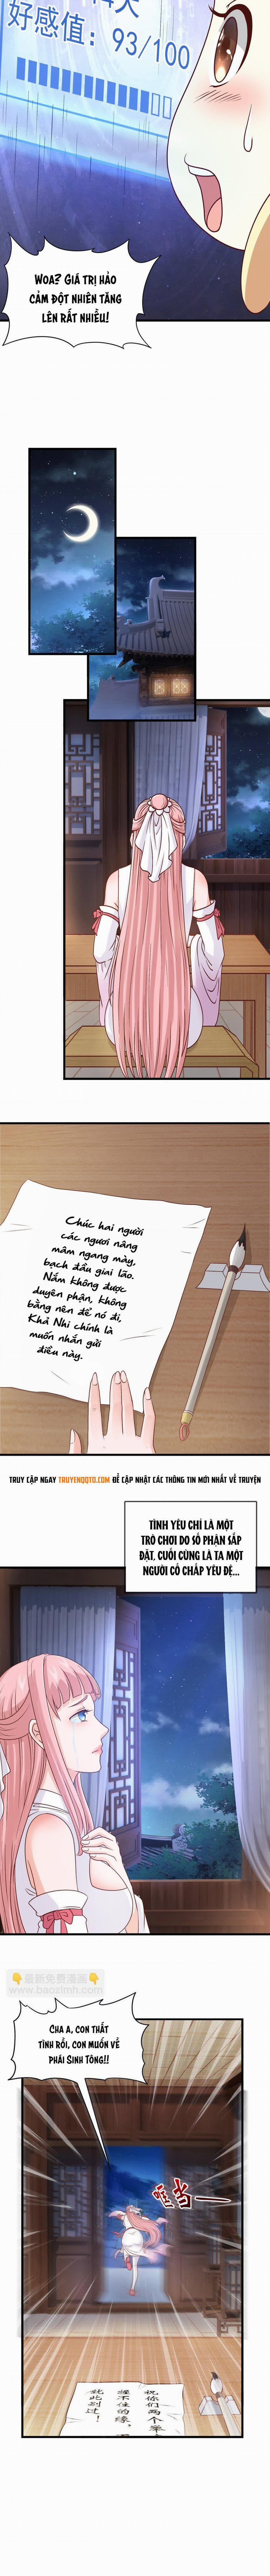 4天
好感值：93/100
WOA? GIÁ TRỊ HẢO
CẢM ĐỘT NHIÊN TĂNG
LÊN RẤT NHIỀU!
Chúc hai người
các ngươi nâng
mâm ngang mày,
bạch đầu giai lão.
Nắm không được
duyên phận, không
bằng nên để nó đi,
Khả Nhi chính là
muốn nhắn gửi
điều này.
TRUY CẬP NGAY TRUYENQQTO.COM ĐỂ CẬP NHẬT CÁC THÔNG TIN MỚI NHẤT VỀ TRUYỆN
TÌNH YÊU CHỈ LÀ MỘT
TRÒ CHƠI DO SỐ PHẬN SẮP
ĐẶT, CUỐI CÙNG LÀ TA MỘT
NGƯỜI CỐ CHẤP YÊU ĐỆ...
👇最新免费漫画👇
www.baozimh.com
CHA A, CON THẤT
TÌNH RỒI, CON MUỐN VỀ
PHÁI SINH TÔNG!!
哐当——
祝你们两个举
握不住的缘，
就此别过！